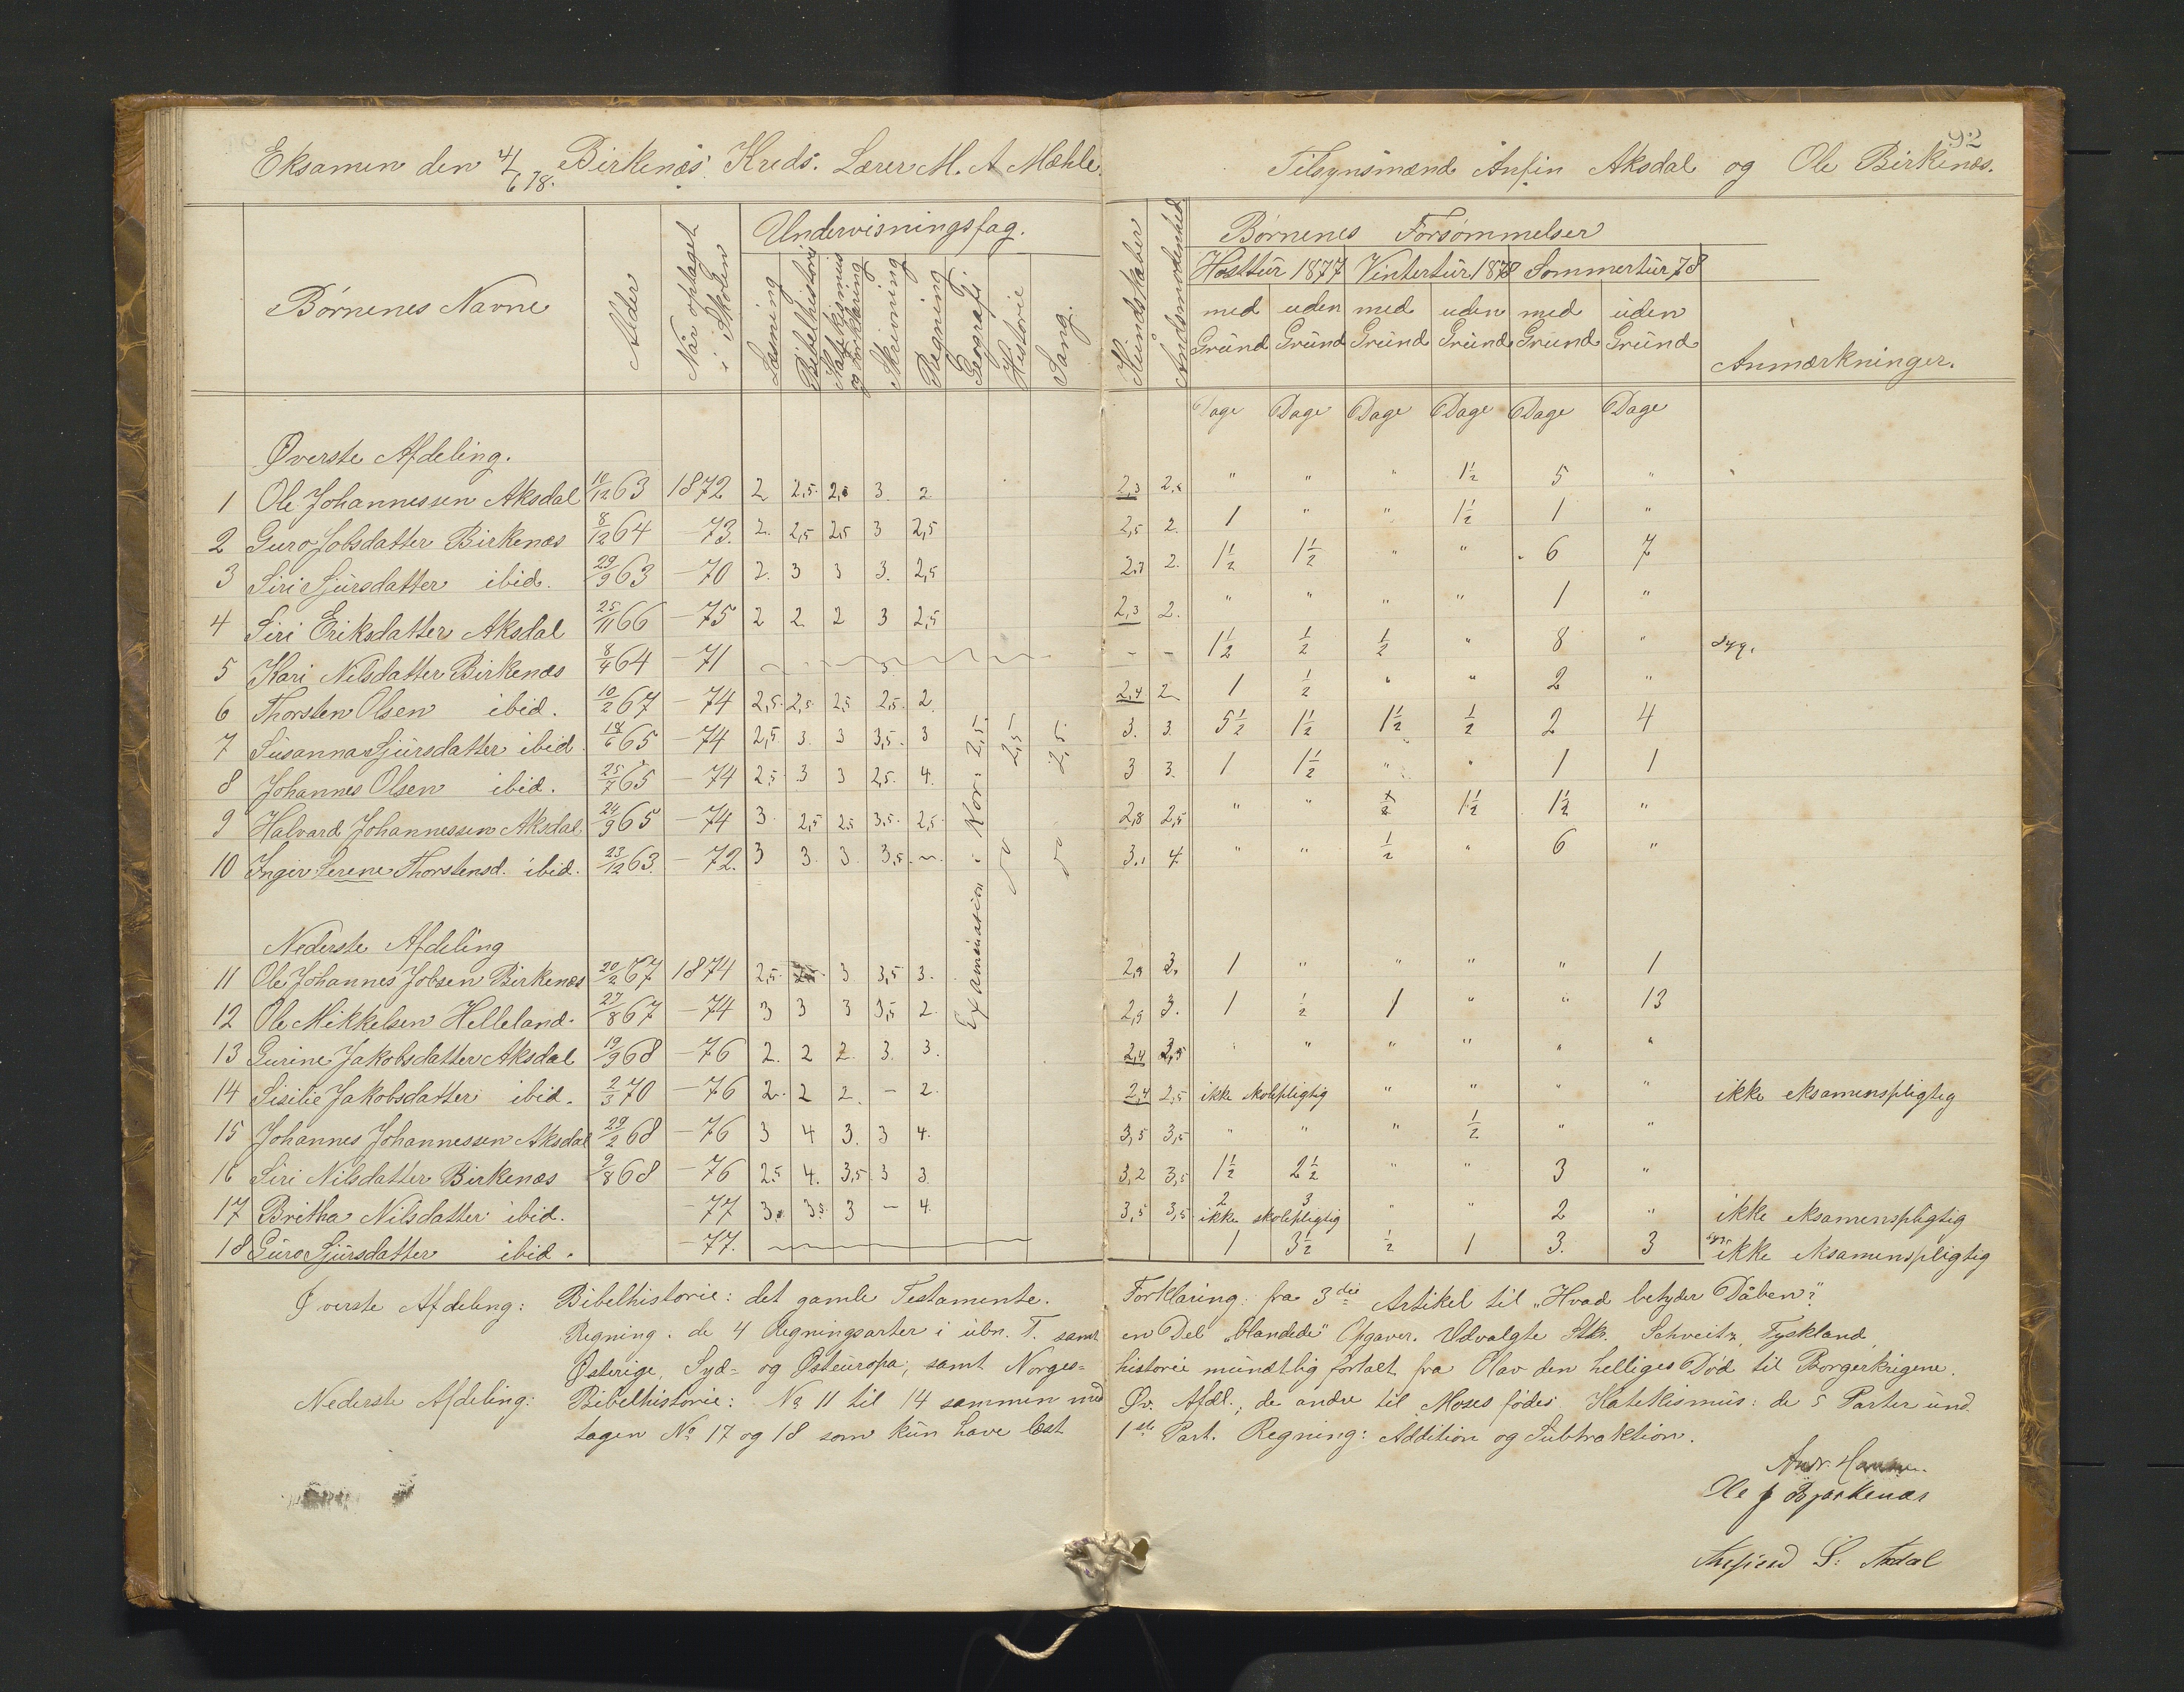 Eksamen den 4/6 78. Birkenæs Kreds. Lærer M. A. Mæhle. Tilsynsmænd Anfin Aksdal og Ole Birkenæs.
92
Børnenes Navne | Alder | Når optaget i Skolen | Undervisningsfag. | Kundskaber | Børnenes Forsømmelser | Anmærkninger.
Læsning | Bibelhistorie | Katekismus og Forklaring | Skrivning | Regning | Geografi. | Historie | Sang.
Høsttür 1877 | Vintertür 1878 | Sommertür 78
med Gründ | uden Gründ | med Gründ | uden Gründ | med Grund | uden Gründ
Dage | Dage | Dage | Dage | Dage | Dage
Øverste Afdeling.
1 Ole Johannessen Aksdal 10/12 63 1872 2 2,5 2, 3. 2 2,3 " " " 1½ 5 "
2 Guro Jobsdatter Birkenæs 8/12 64 – 73. 2. 2,5 2,5 3 2,5 2,5 2. 1 " " 1½ 1 "
3 Siri Sjürsdatter ibid. 29/9 63 – 70 2. 3 3 3. 2,5 2.7 2. 1½ 1½ " " 6 7
4 Siri Eriksdatter Aksdal 25/11 66 – 75 2 2 2 3 2,5 2,3 2. " " " " 1 "
5 Kari Nilsdatter Birkenæs 8/4 64 – 71 – – 1½ ½ ½ " 8 " syg.
6 Thorsten Olsen ibid. 10/2 67 – 74 2,5 2,5 2,5 2,5 2 2,4 2 1 ½ " " 2 "
7 Susanna Sjürsdatter ibid. 18/6 65 – 74 2,5 3. 3 3,5. 3 3. 3. 5½ 1½ 1½ ½ 2 4
8 Johannes Olsen ibid. 25/7 65 – 74 2,5 3 3 2,5. 4. 3 3. 1 1½ " " 1 1
9 Halvard Johannessen Aksdal 24/9 65 – 74 3. 2,5 2,5 3,5. 2,5. 2,8 2,5 " " ½ 1½ 1½ "
10 Inger Serene Thorstensd. ibid. 23/12 63. – 72. 3 3. 3. 3,5. 3.1 4 " " ½ " 6 "
Examination i Kor: 2,5. | do 2,5 | do 2,5.
Nederste Afdeling
11 Ole Johannes Jobsen Birkenæs 20/2 67 1874 2,5. 3 3,5 3. 2,9 3. 1 " " " " 1
12 Ole Mikkelsen Helleland. 27/8 67 – 74 3 3 3 3,5 2. 2,9 3. 1 ½ 1 " " 13
13 Gurine Jakobsdatter Aksdal 19/9 68 – 76 2. 2 2. 3. 3. 2,4 " " " " " "
14 Sisilie Jakobsdatter ibid. 2/3 70 – 76 2. 2 2. – 2. 2,4 2,5 ikke skolepligtig " " " " ikke eksamenspligtig
15 Johannes Johannessen Aksdal 29/2 68 – 76 3 4 3. 3 4. 3,5 3,5 " " " ½ " "
16 Siri Nilsdatter Birkenæs 9/8 68 – 76 2,5 4. 3,5 3 3. 3,2 3,5 1½ 2½ " " 3 "
17 Britha Nilsdatter ibid. – 77 3. 3,5 3 – 4. 3,5 3,5 2 3 ikke skolepligtig " " 2 " ikke eksamenspligtig
18 Guro Sjürsdatter ibid. – 77. 1 3½ ½ 1 3. 3 syg. ikke eksamenspligtig
Øverste Afdeling: Bibelhistorie: det gamle Testamente. Forklaring: fra 3die Artikel til „Hvad betyder Dåben?"
Regning: de 4 Regningsarter i übn. T. samt en Del „blandede" Opgaver. Udvalgte Stkr. Schveitz, Tyskland,
Østerige, Syd- og Østeuropa; samt Norges- historie mündtlig fortalt fra Olav den helliges Død til Borgerkrigene.
Nederste Afdeling: Bibelhistorie: No 11 til 14 sammen med Øv. Afdl.; de andre til Moses fødes. Katekismüs: de 5 Parter und
tagen No 17 og 18 som kün have læst 1ste Part. Regning: Addition og Subtraktion.
Andr. Hansen.
Ole J Bjørkenæs
S. Axdal